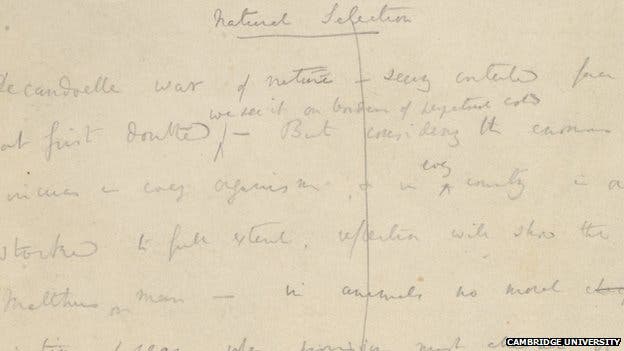 Natural Selection
Decandolle war of nature – seeing contented face
we see it on borders of perpetual cold
at first doubted – But considering the enormous
increase in every organism & in every country in
stocked to full extent, reflection will show the
Malthus on man – in animals no moral
must
CAMBRIDGE UNIVERSITY